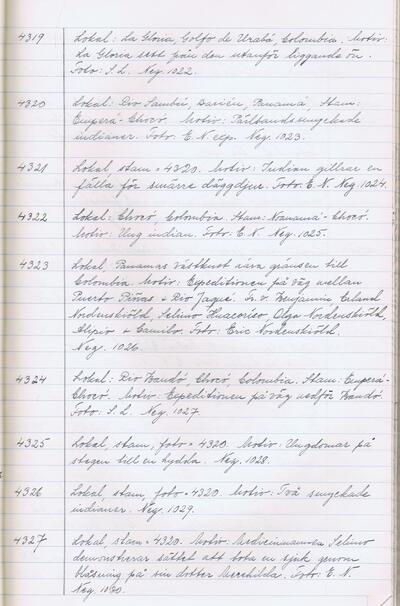 4319 Lokal: La Gloria, Golfo de Urabá, Colombia. Motiv:
La Gloria sett från den utanför liggande ön.
Foto: S.L. Neg. 1022.
4320 Lokal: Rio Sambú, Darién, Panamá. Stam:
Emperá-Chocó. Motiv: Pälbandssmyckade
indianer. Foto: E.N. exp. Neg. 1023.
4321 Lokal, stam = 4320. Motiv: Indian gillrar en
fälla för smärre däggdjur. Foto: E.N. Neg. 1024.
4322 Lokal: Chocó, Colombia. Stam: Nonamá-Chocó.
Motiv: Ung indian. Foto: E.N. Neg. 1025.
4323 Lokal: Panamas västkust nära gränsen till
Colombia. Motiv: Expeditionen på väg mellan
Puerto Piñas & Rio Jaqué. Fr. v. Benjamin, Erland
Nordenskiöld, Selimo Huacoriso, Olga Nordenskiöld,
& Camilo. Foto: Eric Nordenskiöld.
Neg. 1026.
4324 Lokal: Rio Baudó, Chocó, Colombia. Stam: Emperá-
Chocó. Motiv: Expeditionen på väg nedför Baudó.
Foto: S.L. Neg. 1027.
4325 Lokal, stam, foto = 4320. Motiv: Ungdomar på
stegen till en hydda. Neg. 1028.
4326 Lokal, stam, foto = 4320. Motiv: Två smyckade
indianer. Neg. 1029.
4327 Lokal, stam = 4320. Motiv: Medicinmannen Selimo
demonstrerar sättet att bota en sjuk genom
blåsning på sin dotter. Foto: E.N.
Neg. 1030.